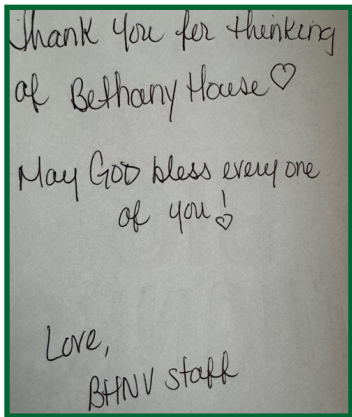 Thank you for thinking
of Bethany House♡
May GOD bless every one
of you!
Love,
BHNV staff